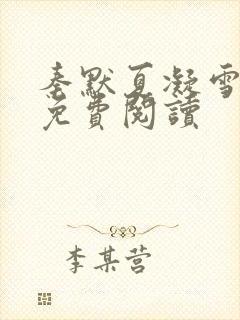 秦默夏凝雪
免費閱讀
李某营